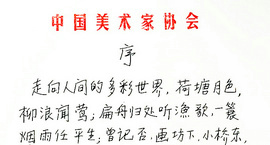 中国美术家协会
序
走向人间的多彩世界，荷塘月色，
柳浪闻莺；扁舟归处听渔歌，一蓑
烟雨任平生；曾记否，画坊下，小桥东，